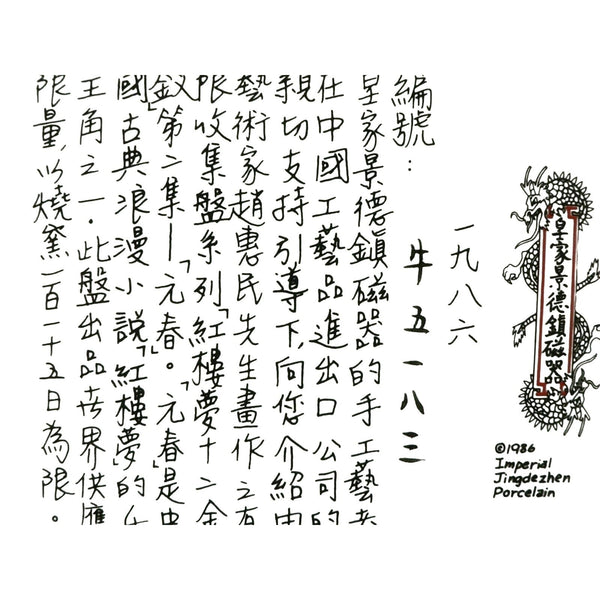 皇家景德鎮磁器
©1986
Imperial
Jingdezhen
Porcelain
一九八六
編號：
牛五一八三
皇家景德鎮磁器的手工藝
在中國工藝品進出口公司的
親切支持引導下,向您介紹
藝術家趙惠民先生畫作之有
限收集盤系列「紅樓夢十二金
釵」第二集—「元春」。「元春」是中
國古典浪漫小說「紅樓夢」的女
主角之一．此盤出品世界供應
限量,以燒窯一百一十五日為限。